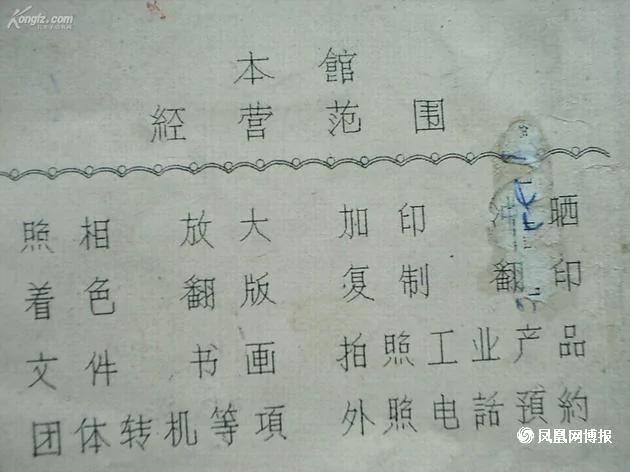 Kongfz.com
本館
経营范围
照相 放大 加印 冲晒
着色 翻版 复制 翻印
文件 书画 拍照工业产品
团体转机等項 外照电話預約
凤凰网博报